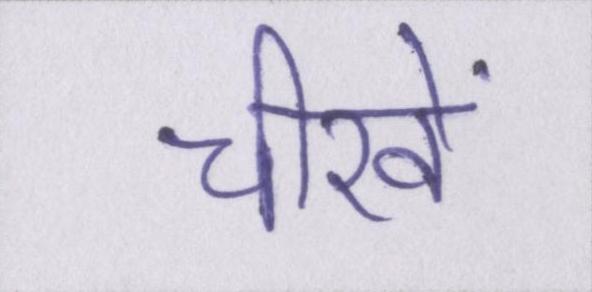 चीखें